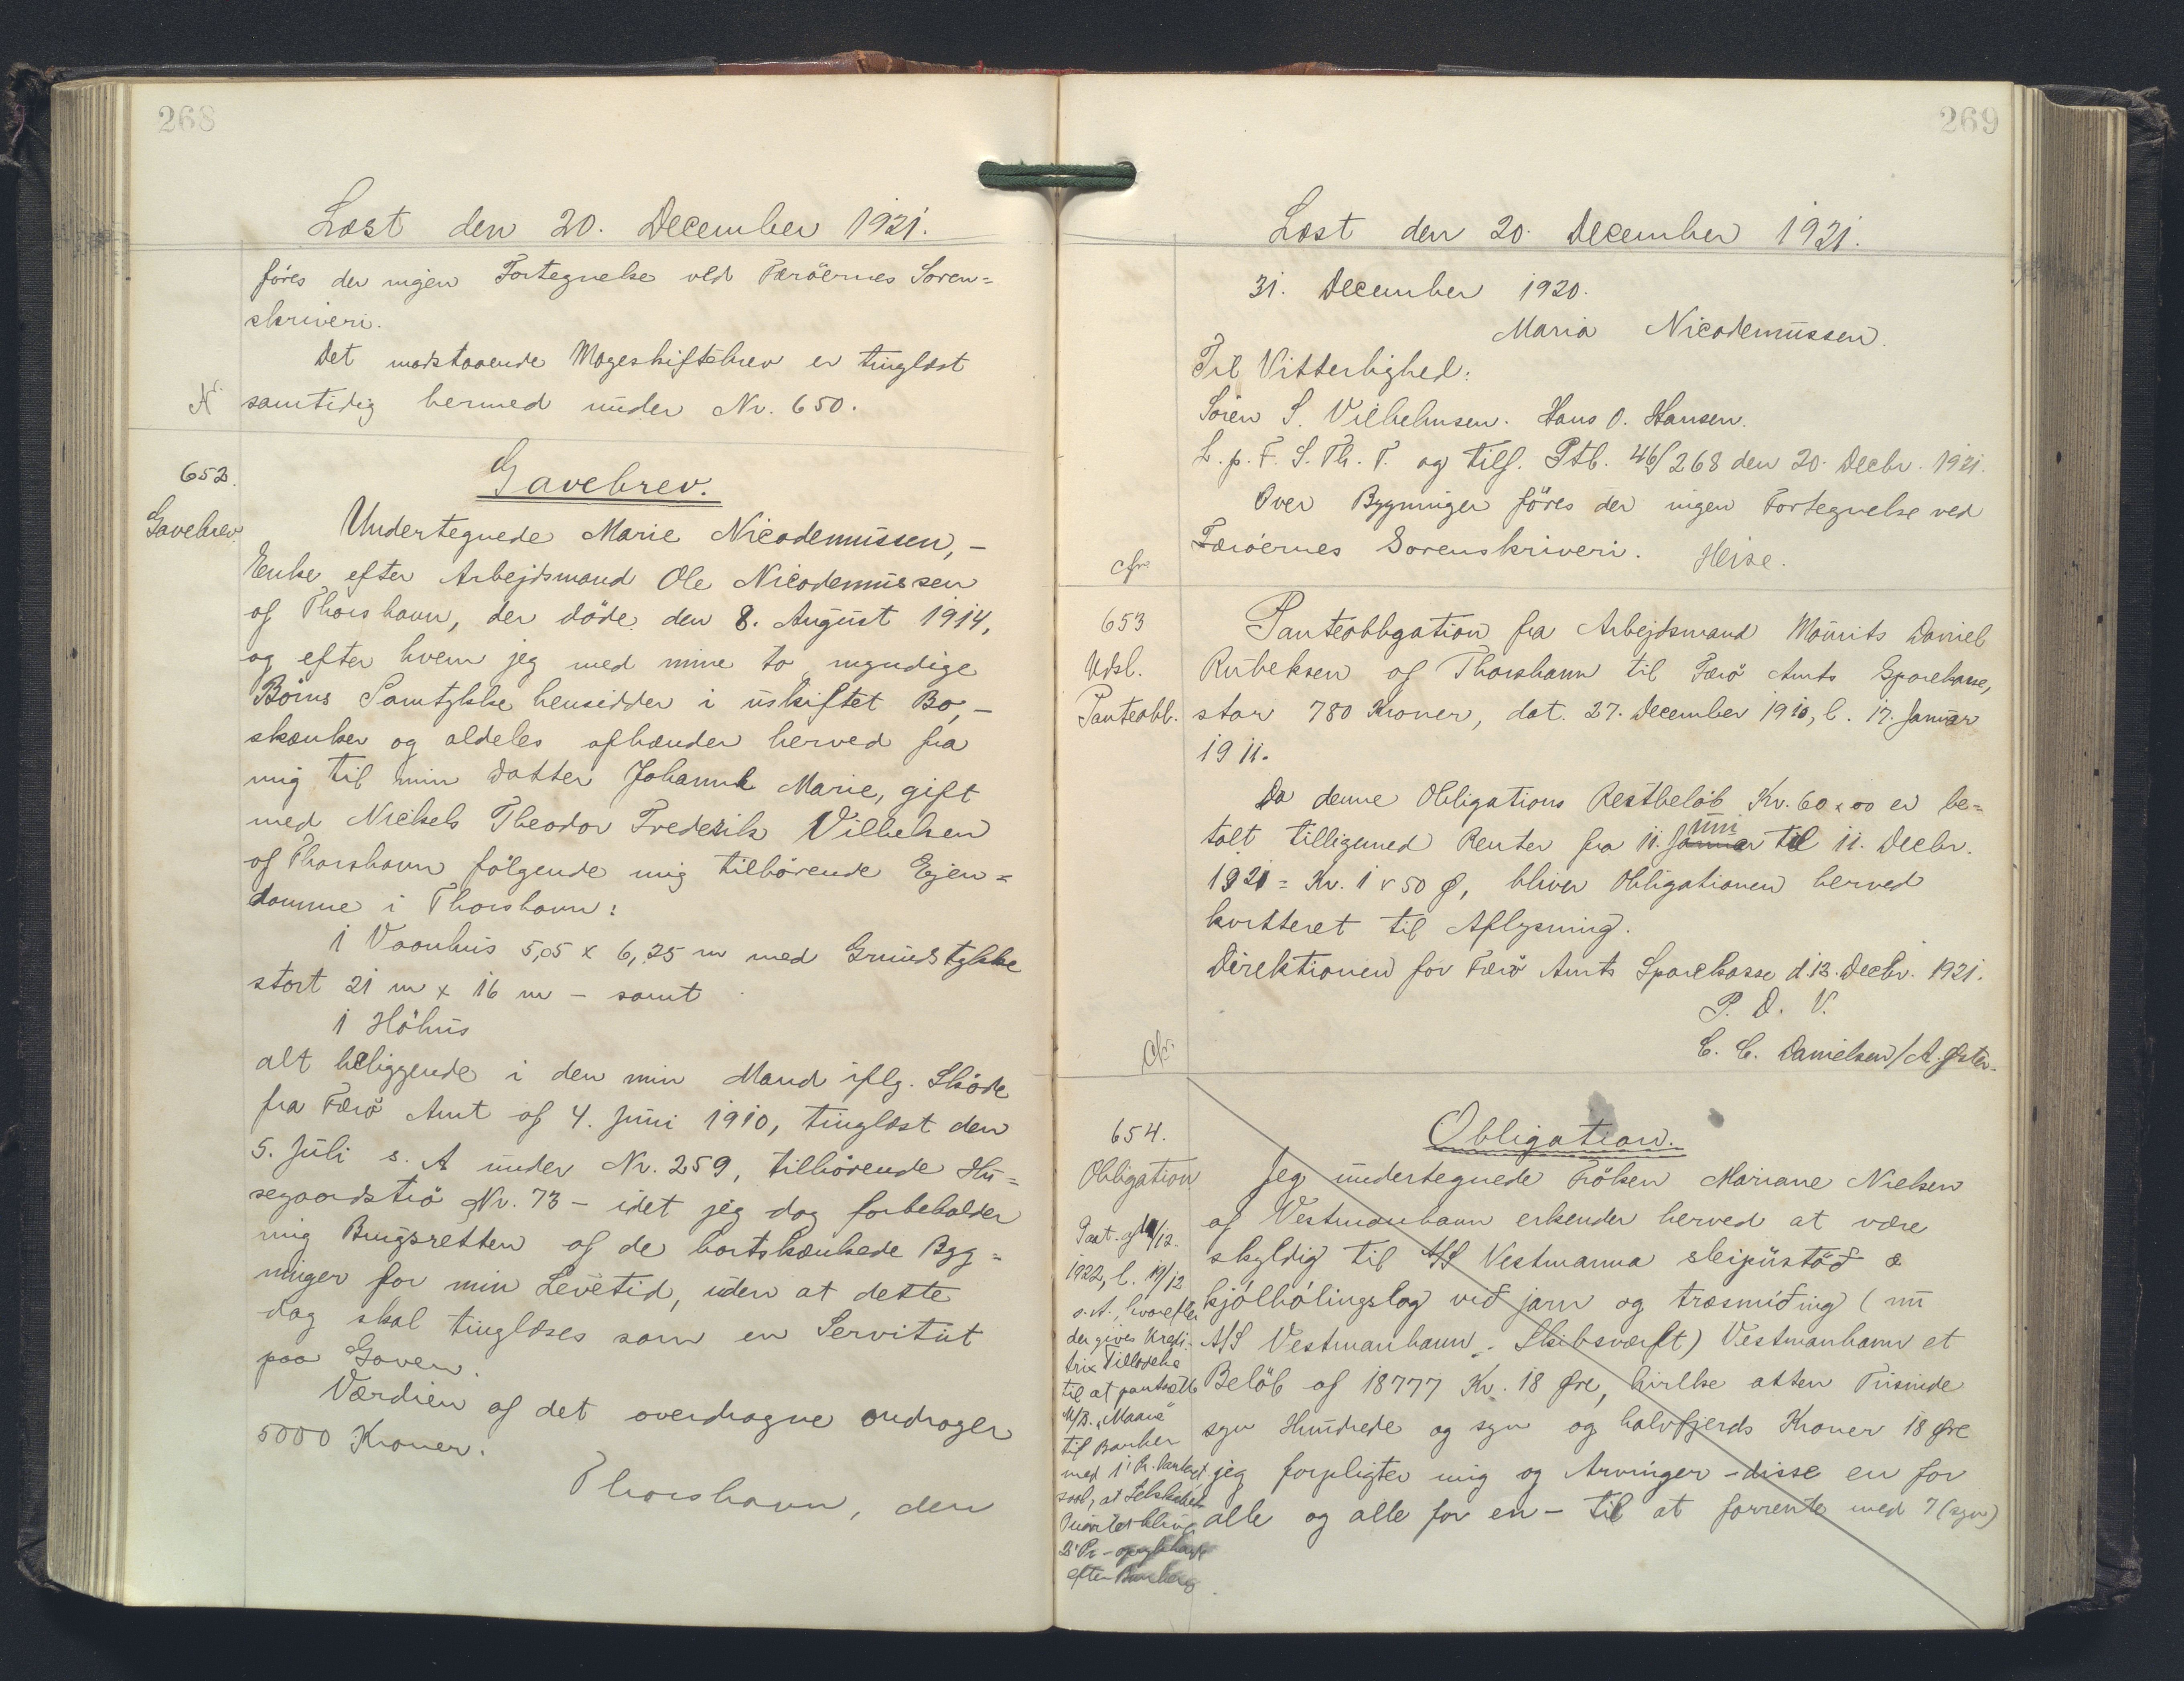 268
Læst den 20. December 1921.
føres der ingen Fortegnelse ved Færöernes Soren=
skriveri.
Det modstaaende Mageskiftebrev er tinglæst
samtidig hermed under Nr. 650.
652.
Gavebrev.
Gavebrev.
Undertegnede Marie Nicodemussen, –
Enke efter Arbejdsmand Ole Nicodemussen
af Thorshavn, der döde den 8. August 1914,
og efter hvem jeg med mine to myndige
Börns Samtykke hensidder i uskiftet Bo, –
skænker og aldeles afhænder herved fra
mig til min Datter Johanne Marie, gift
med Niels Theodor Frederik Vilhelsen
af Thorshavn fölgende mig tilhörende Ejen=
domme i Thorshavn:
1 Vaanhus 5,05 x 6,25 m med Grundstykke
stort 21 m x 16 m – samt
1 Höhus
alt beliggende i den min Mand iflg. Sköde
fra Færö Amt af 4. Juni 1910, tinglæst den
5. Juli s. A under Nr. 259, tilhörende Hu=
segaardströ Nr. 73 – idet jeg dog forbeholder
mig Brugsretten af de bortskænkede Byg=
ninger for min Levetid, uden at dette
dog skal tinglæses som en Servitut
paa Gaven.
Værdien af det overdragne andrager
5000 Kroner.
Thorshavn, den
269
Læst den 20. December 1921.
31. December 1920.
Maria Nicodemussen.
Til Vitterlighed:
Sören S. Vilhelmsen. Hans O. Hansen.
L. p. F. S. Th. T. og tilf. Ptb. 46/268 den 20. Decbr. 1921.
Over Bygninger föres der ingen Fortegnelse ved
Færöernes Sorenskriveri. Heise.
cfr
653
Udsl.
Panteobl.
Panteobligation fra Arbejdsmand Mourits Daniel
Rubeksen af Thorshavn til Færö Amts Sparekasse,
stor 780 Kroner, dat. 27. December 1910, l. 17. Januar
1911.
Da denne Obligations Restbelöb Kr. 60 x 00 er be=
talt tilligemed Renter fra 11. Juni til 11. Decbr.
1921 = Kr. 1 x 50 Ø, bliver Obligationen herved
kvitteret til Aflysning.
Direktionen for Færö Amts Sparekasse d. 12. Decbr. 1921.
P. D. V.
C. C. Danielsen / A. Øster.
Cfr.
654.
Obligation
Obligation.
Jeg undertegnede Fröken Mariane Nielsen
af Vestmanhavn erkender herved at være
skyldig til A/S Vestmanna sleipustöð &
kjólhálingslag við jarn og træsmiðing (nu
A/S Vestmanhavn - Skibsværft) Vestmanhavn et
Belöb af 18777 Kr. 18 Øre, hvilke atten Tusinde
syv Hundrede og syv og halvfjerds Kroner 18 Øre
jeg forpligter mig og Arvinger – disse en for
alle og alle for en – til at forrente med 7 (syv)
1922, l. 19/12
s. A., hvorefter
der gives Kredi-
trix Tilladelse
til at pantsætte
M/B. "Maaie"
til Banken
med 1' Pr. Panteret
saal, at Selskabets
Prioritet bliver
2' Pr –
efter